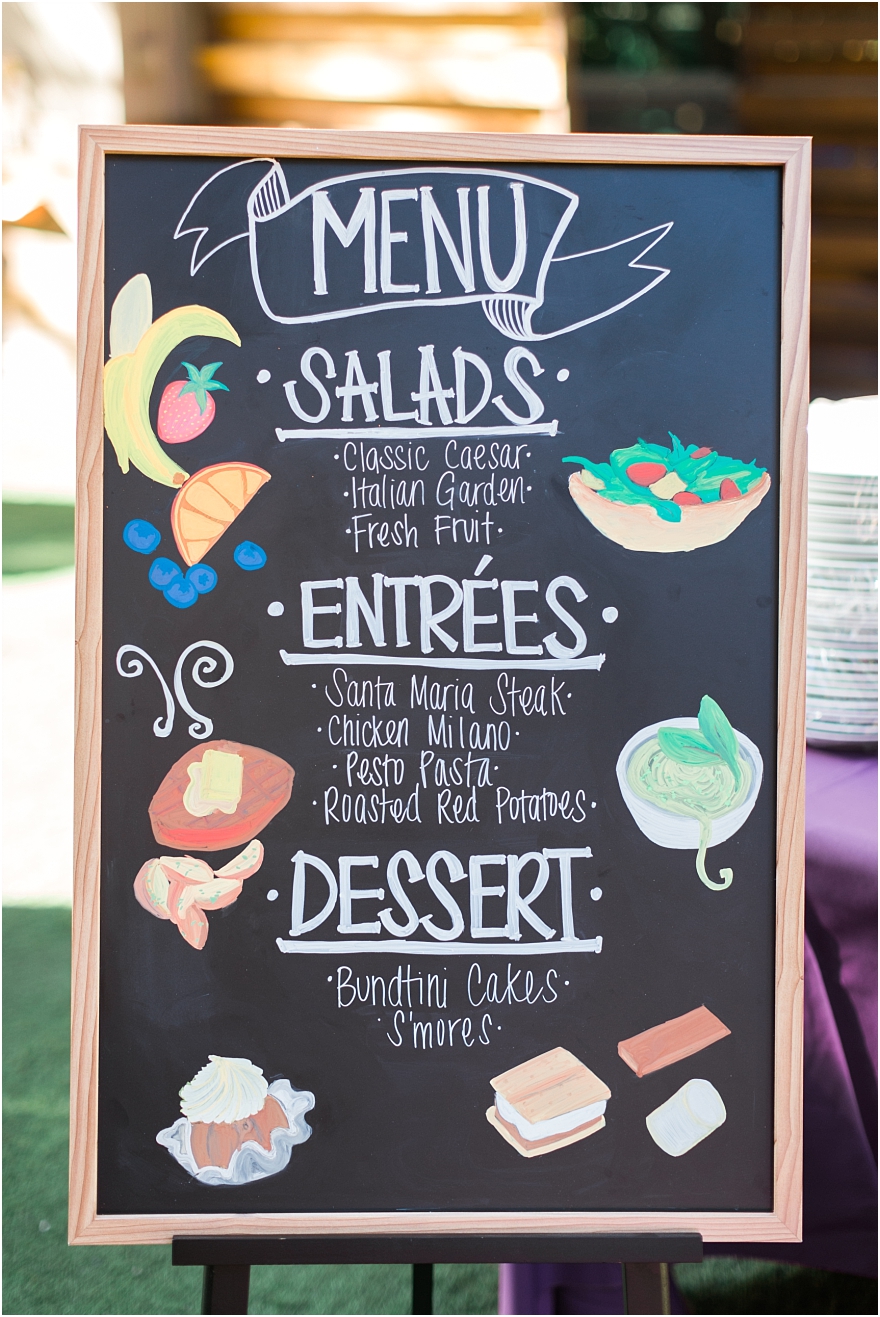 MENU
·SALADS·
·Classic Caesar·
·Italian Garden·
·Fresh Fruit·
·ENTRÉES·
·Santa Maria Steak·
·Chicken Milano·
·Pesto Pasta·
·Roasted Red Potatoes·
·DESSERT·
·Bundtini Cakes·
·S'mores·